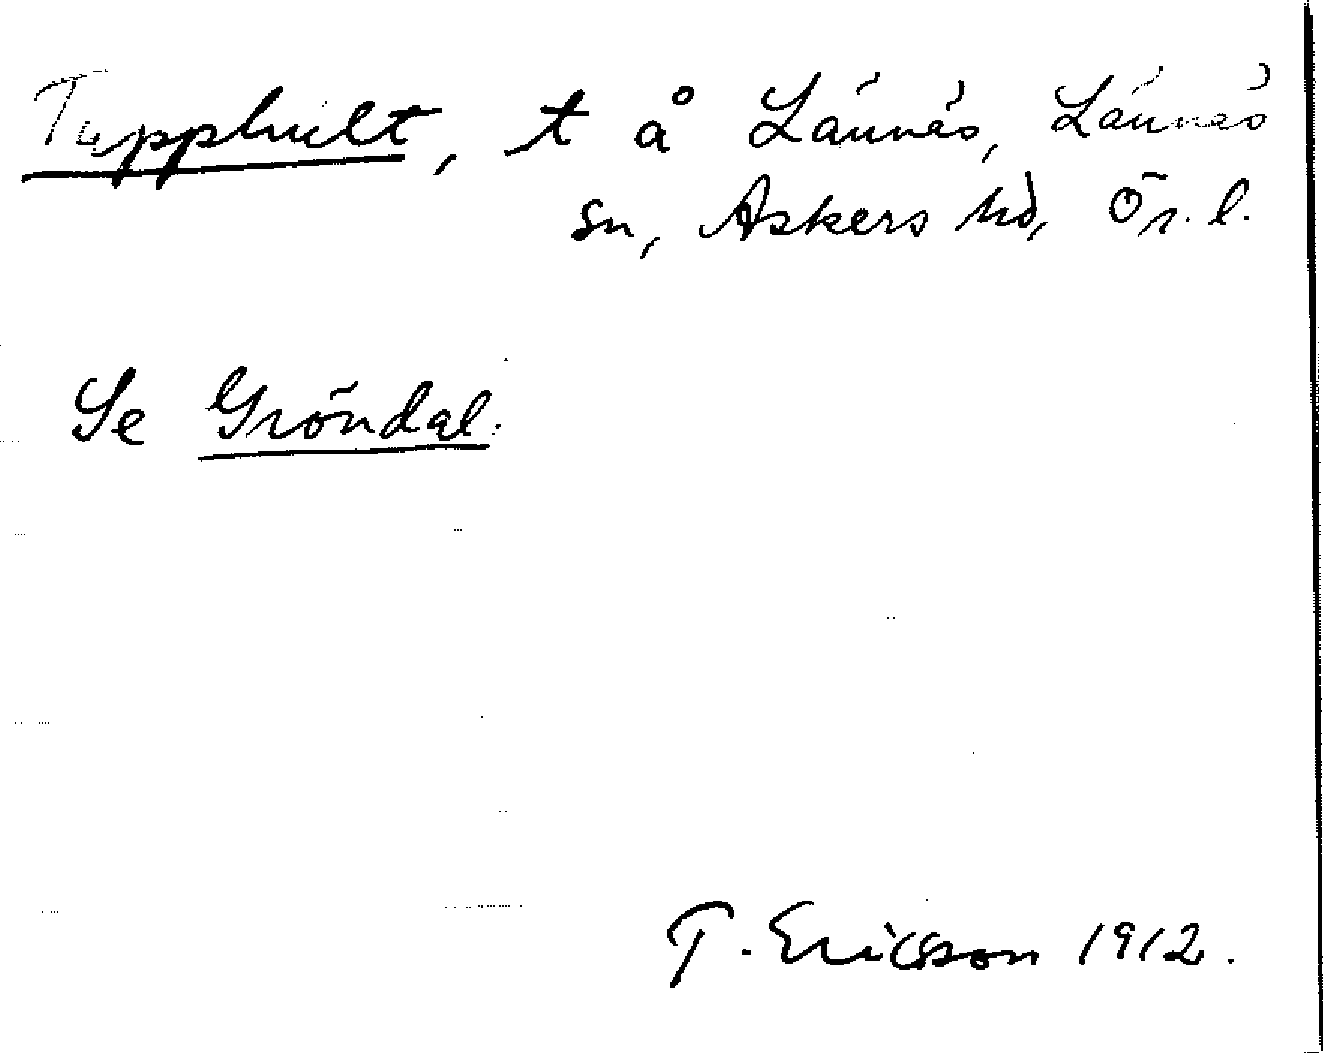 Tupphult, t å Lännäs, Lännäs
sn, Askers hd, Ör. l.
Se Gröndal.
T. Ericsson 1912.